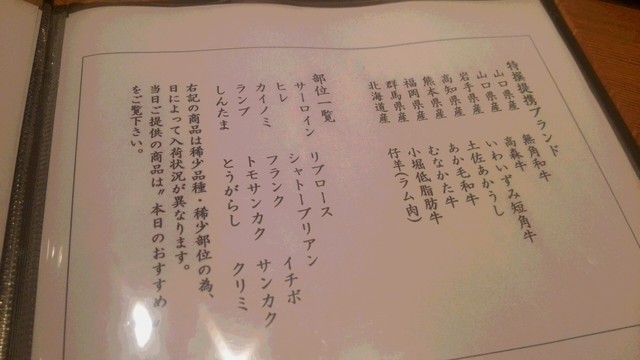 特撰提携ブランド
山口県産 無角和牛
山口県産 高森牛
岩手県産 いわいずみ短角牛
高知県産 土佐あかうし
熊本県産 あか毛和牛
福岡県産 むなかた牛
群馬県産 小堀低脂肪牛
北海道産 仔羊(ラム肉)
部位一覧
サーロイン リブロース イチボ
ヒレ シャトーブリアン サンカク
カイノミ フランク クリミ
ランプ トモサンカク
しんたま とうがらし
右記の商品は稀少品種・稀少部位の為、
日によって入荷状況が異なります。
当日ご提供の商品は〝本日のおすすめ〟
をご覧下さい。